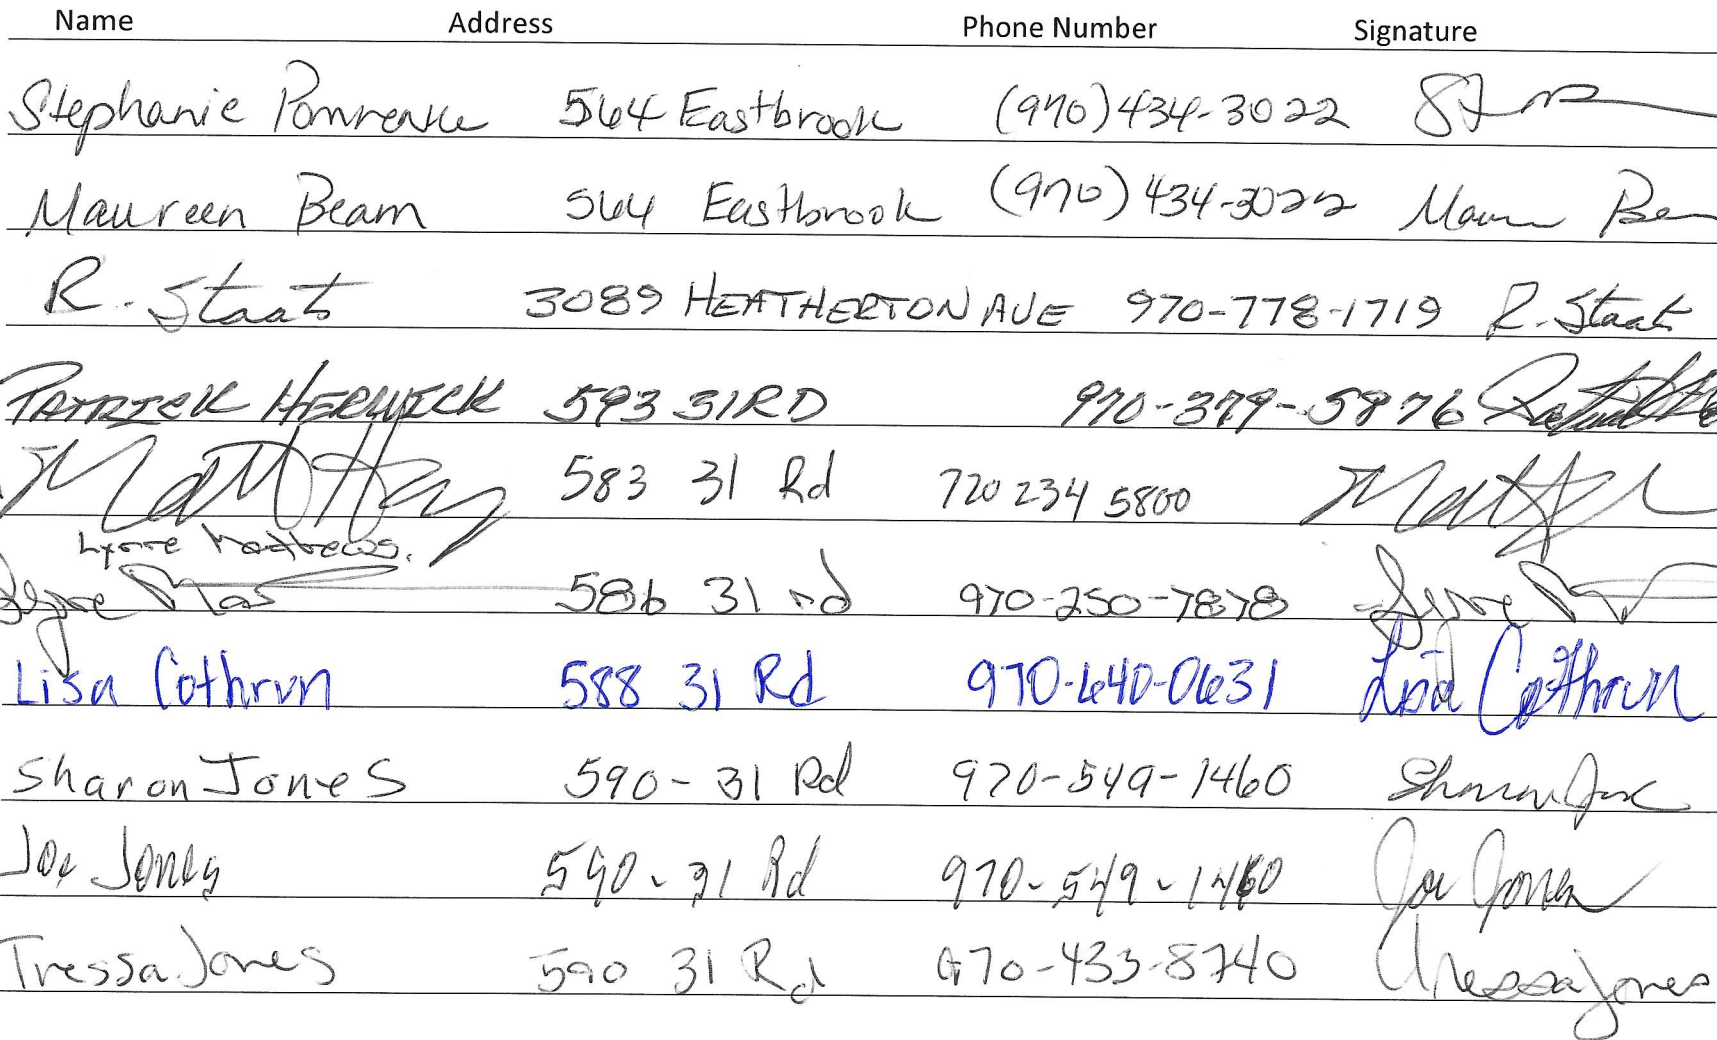 Name Address Phone Number Signature
Stephanie Pomrenke 564 Eastbrook (970)434-3022
Maureen Beam 564 Eastbrook (970)434-3022 Maureen Beam
R. Staats 3089 HEATHERTON AVE 970-778-1719 R. Staats
PATRICK HERWICK 593 31 RD 970-379-5876
Matt 583 31 Rd 720 234 5800 Matt
Lynne Mathews.
Lynne 586 31 rd 970-250-7878 Lynne
Lisa Cothrun 588 31 Rd 970-640-0631 Lisa Cothrun
Sharon Jones 590-31 Rd 970-549-1460 Sharon Jones
Joe Jones 590-31 Rd 970-549-1460 Joe Jones
Tressa Jones 590 31 Rd 970-433-8740 Tressa Jones